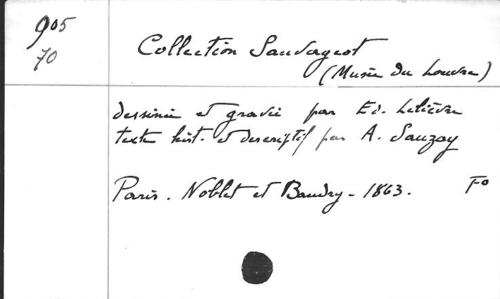 905
70
Collection Sauvageot
(Musée du Louvre)
dessinée et gravée par Ed. Lelièvre
texte hist. et descriptif par A. Sauzay
Paris. Noblet et Baudry - 1863. Fo